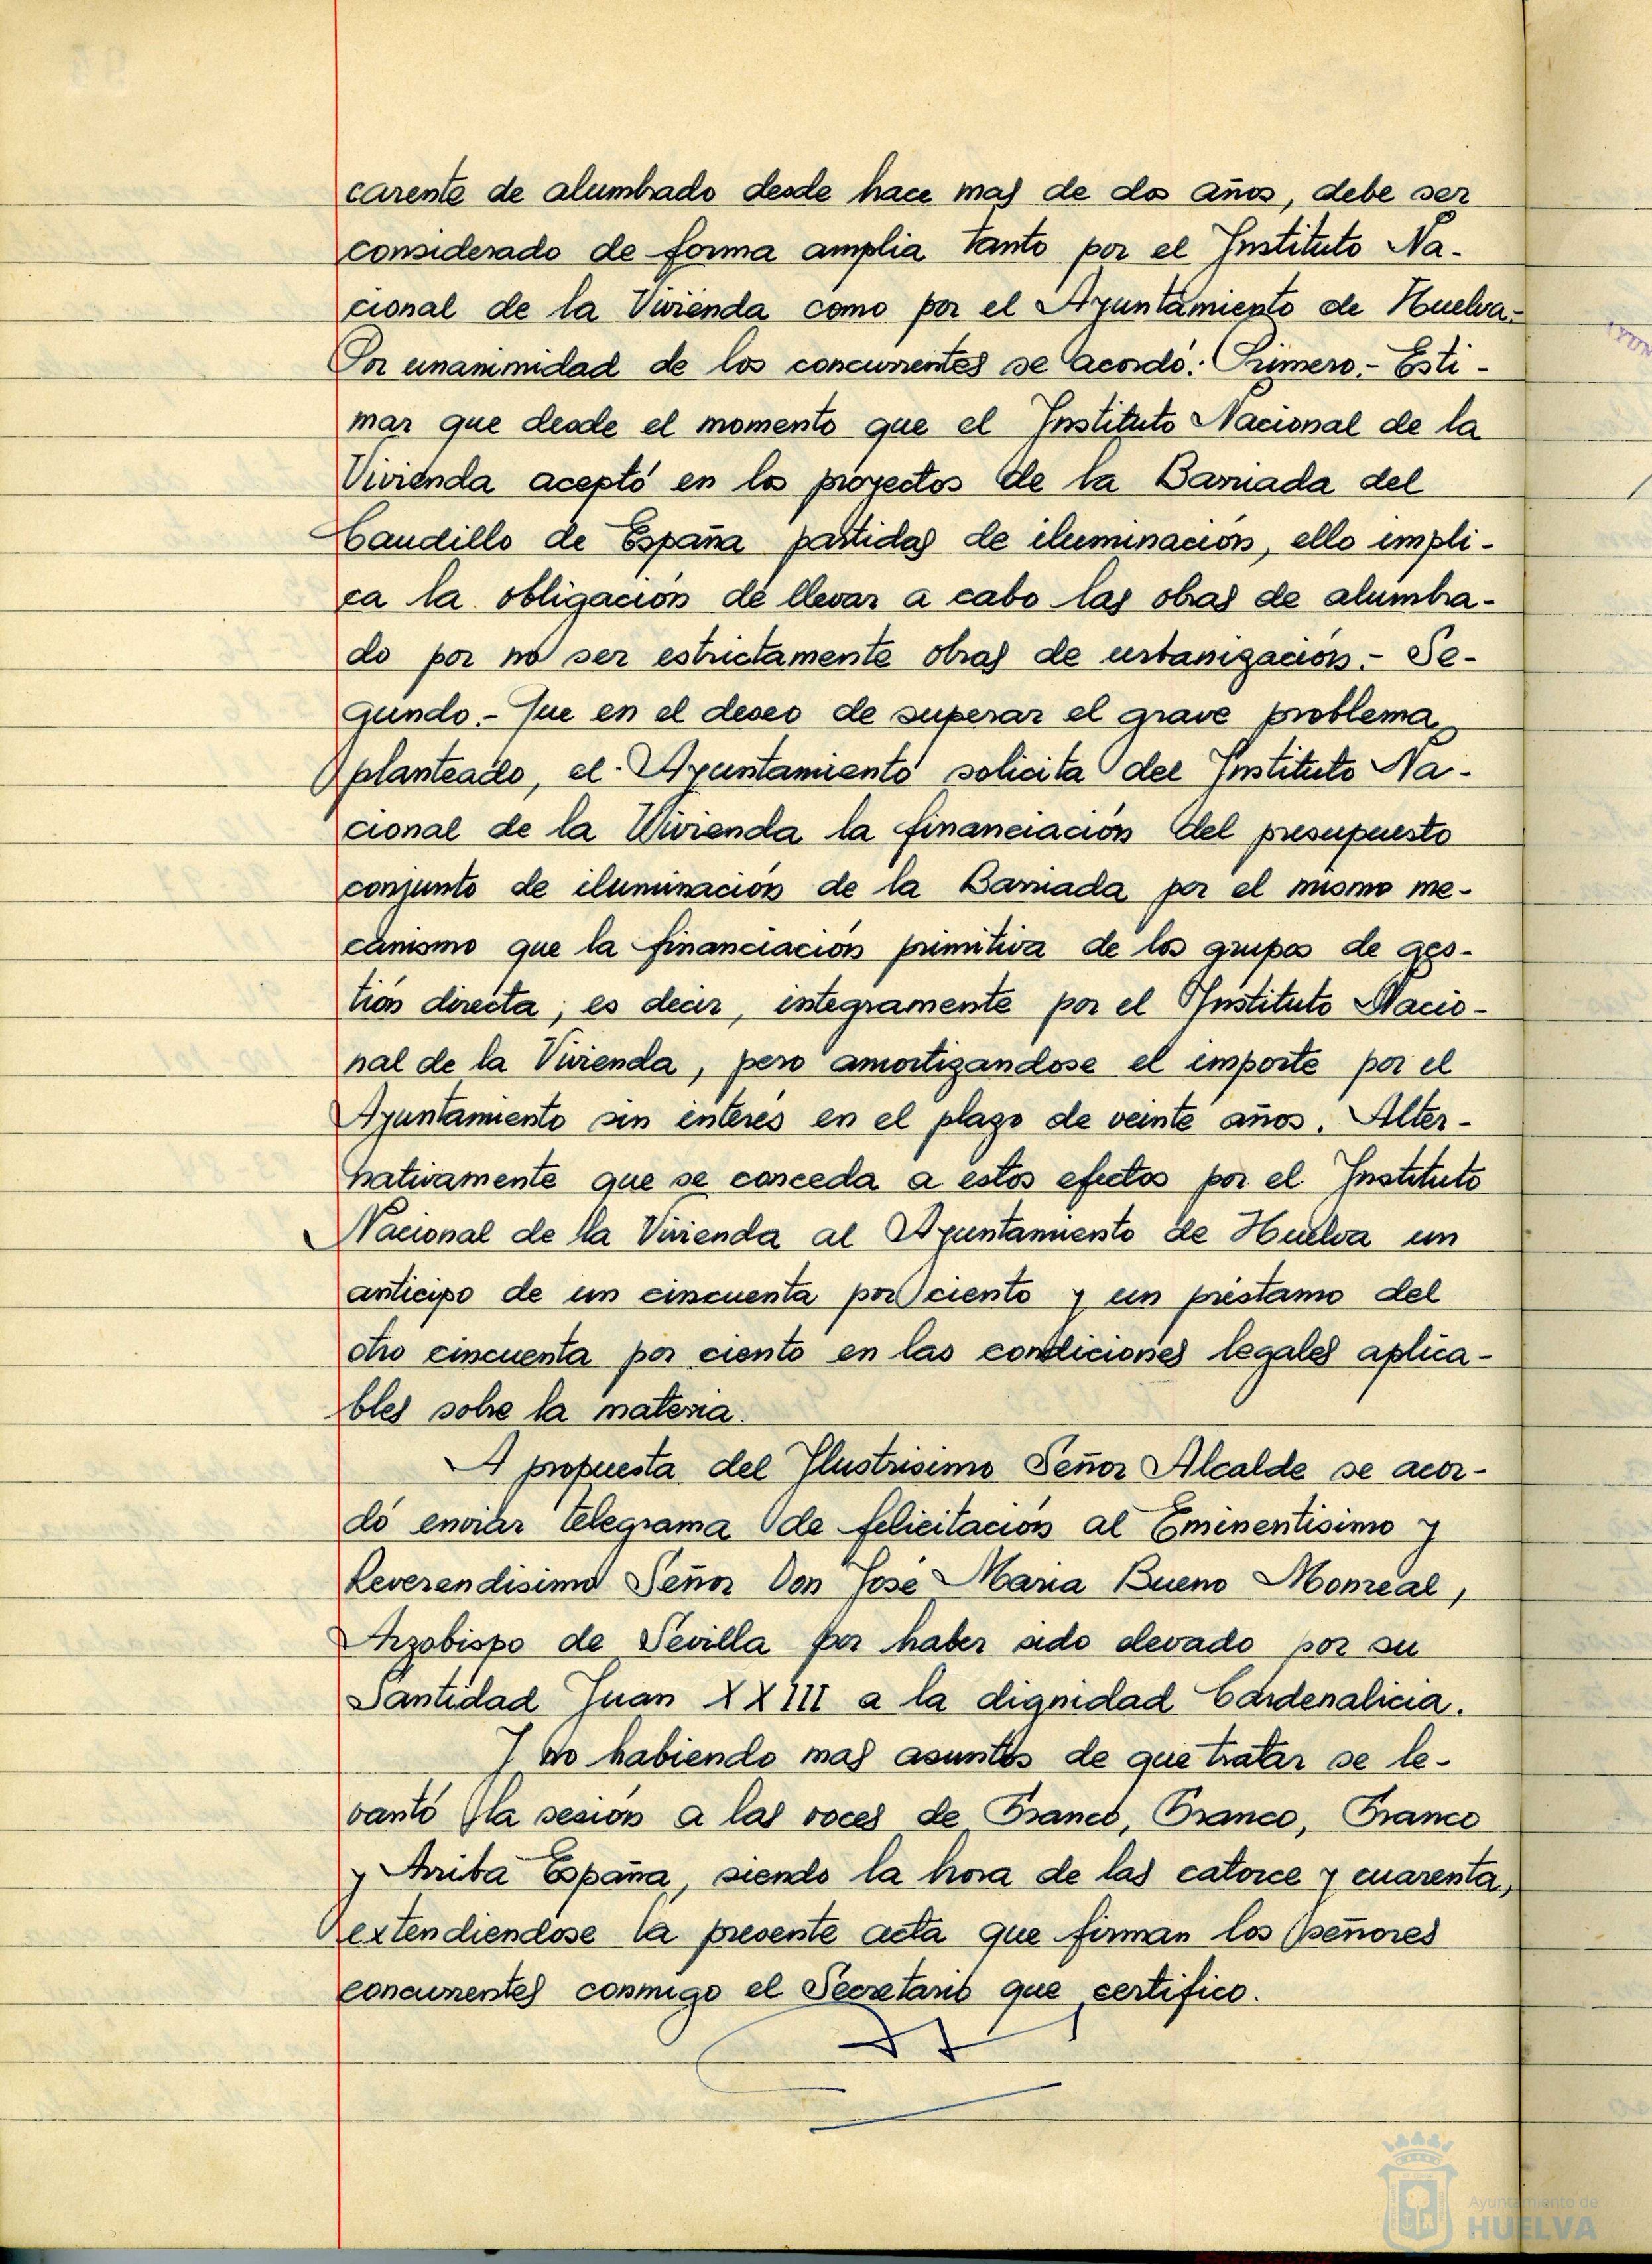 carente de alumbrado desde hace mas de dos años, debe ser
considerado de forma amplia tanto por el Instituto Na-
cional de la Vivienda como por el Ayuntamiento de Huelva.-
Por unanimidad de los concurrentes se acordó: Primero.- Esti-
mar que desde el momento que el Instituto Nacional de la
Vivienda aceptó en los proyectos de la Barriada del
Caudillo de España partidas de iluminación, ello impli-
ca la obligación de llevar a cabo las obras de alumbra-
do por no ser estrictamente obras de urbanización.- Se-
gundo.- Que en el deseo de superar el grave problema
planteado, el Ayuntamiento solicita del Instituto Na-
cional de la Vivienda la financiación del presupuesto
conjunto de iluminación de la Barriada por el mismo me-
canismo que la financiación primitiva de los grupos de ges-
tión directa, es decir, integramente por el Instituto Nacio-
nal de la Vivienda, pero amortizandose el importe por el
Ayuntamiento sin interés en el plazo de veinte años. Alter-
nativamente que se conceda a estos efectos por el Instituto
Nacional de la Vivienda al Ayuntamiento de Huelva un
anticipo de un cincuenta por ciento y un préstamo del
otro cincuenta por ciento en las condiciones legales aplica-
bles sobre la materia.
A propuesta del Ilustrisimo Señor Alcalde se acor-
dó enviar telegrama de felicitación al Eminentisimo y
Reverendisimo Señor Don José Maria Bueno Monreal,
Arzobispo de Sevilla por haber sido elevado por su
Santidad Juan XXIII a la dignidad Cardenalicia.
Y no habiendo mas asuntos de que tratar se le-
vantó la sesión a las voces de Franco, Franco, Franco
y Arriba España, siendo la hora de las catorce y cuarenta,
extendiendose la presente acta que firman los señores
concurrentes conmigo el Secretario que certifico.
Ayuntamiento de
HUELVA